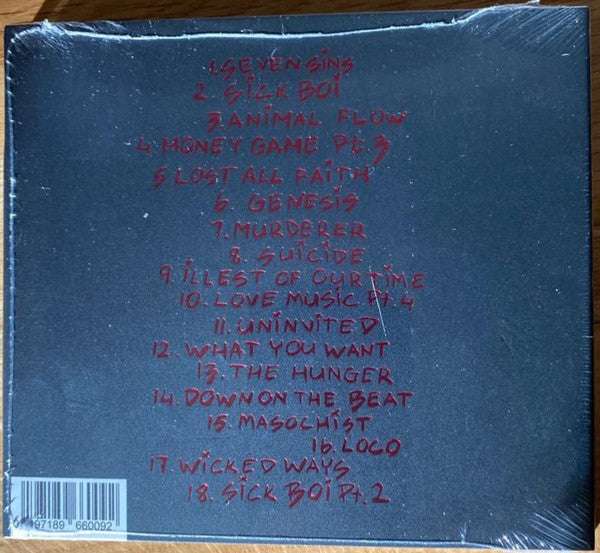 1. SEVEN SINS
2 SICK BOI
3. ANIMAL FLOW
4. MONEY GAME PT.3
5 LOST ALL FAITH
6. GENESIS
7. MURDERER
8. SUICIDE
9. ILLEST OF OUR TIME
10. LOVE MUSIC Pt.4
11. UNINVITED
12. WHAT YOU WANT
13. THE HUNGER
14. DOWN ON THE BEAT
15. MASOCHIST
16. LOCO
17. WICKED WAYS
18. SICK BOI Pt.2
197189 660092